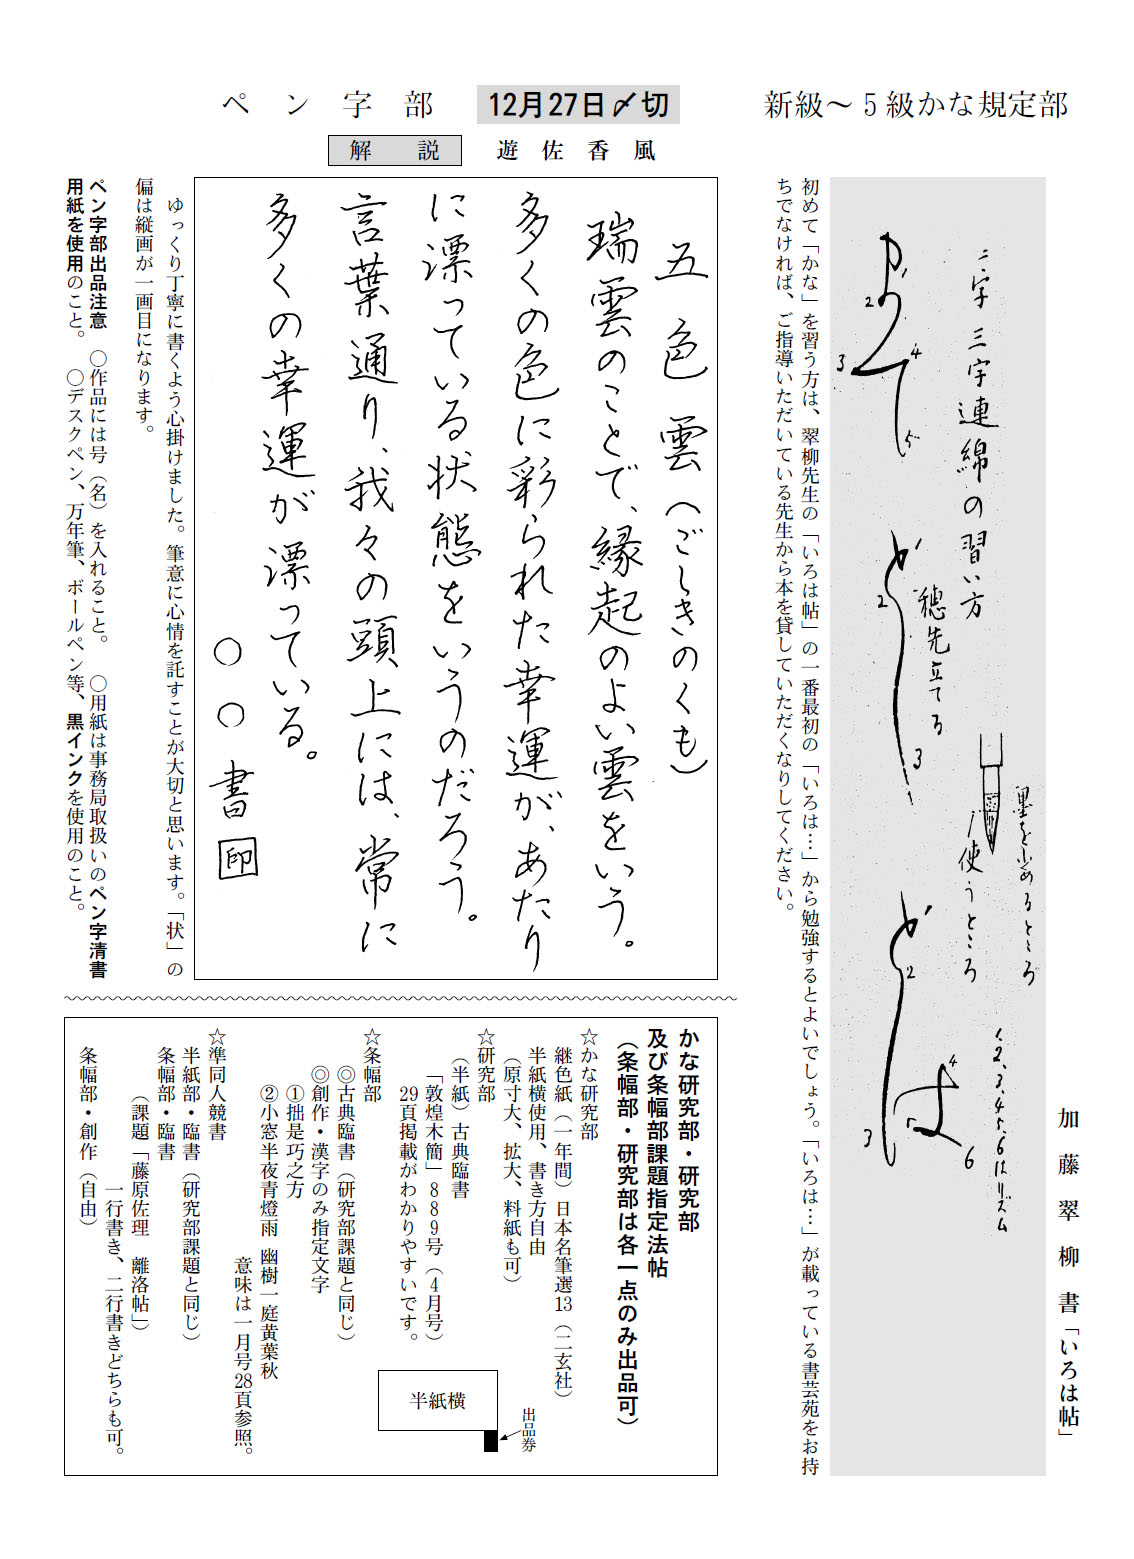 新級～5級かな規定部
加藤翠柳書「いろは帖」
二字 三字連綿の習い方
穂先立てる
墨を止めるところ
使うところ
1.2.3.4.5.6はリズム
1
2
3
4
5
1
2
3
1
2
3
4
5
6
初めて「かな」を習う方は、翠柳先生の「いろは帖」の一番最初の「いろは…」から勉強するとよいでしょう。「いろは…」が載っている書芸苑をお持
ちでなければ、ご指導いただいている先生から本を貸していただくなりしてください。
ペン字部
12月27日〆切
解説
遊佐香風
五色雲（ごしきのくも）
瑞雲のことで、縁起のよい雲をいう。
多くの色に彩られた幸運が、あたり
に漂っている状態をいうのだろう。
言葉通り、我々の頭上には、常に
多くの幸運が漂っている。
○○書 印
ゆっくり丁寧に書くよう心掛けました。筆意に心情を託すことが大切と思います。「状」の
偏は縦画が一画目になります。
ペン字部出品注意 ○作品には号（名）を入れること。 ○用紙は事務局取扱いのペン字清書
用紙を使用のこと。 ○デスクペン、万年筆、ボールペン等、黒インクを使用のこと。
かな研究部・研究部
及び条幅部課題指定法帖
（条幅部・研究部は各一点のみ出品可）
☆かな研究部
継色紙（一年間）日本名筆選13（二玄社）
半紙横使用、書き方自由
（原寸大、拡大、料紙も可）
☆研究部
（半紙）古典臨書
「敦煌木簡」889号（4月号）
29頁掲載がわかりやすいです。
☆条幅部
◎古典臨書（研究部課題と同じ）
◎創作・漢字のみ指定文字
①拙是巧之方
②小窓半夜青燈雨 幽樹一庭黄葉秋
意味は一月号28頁参照。
☆準同人競書
半紙部・臨書（研究部課題と同じ）
条幅部・臨書
（課題「藤原佐理 離洛帖」）
一行書き、二行書きどちらも可。
条幅部・創作（自由）
半紙横
出品券